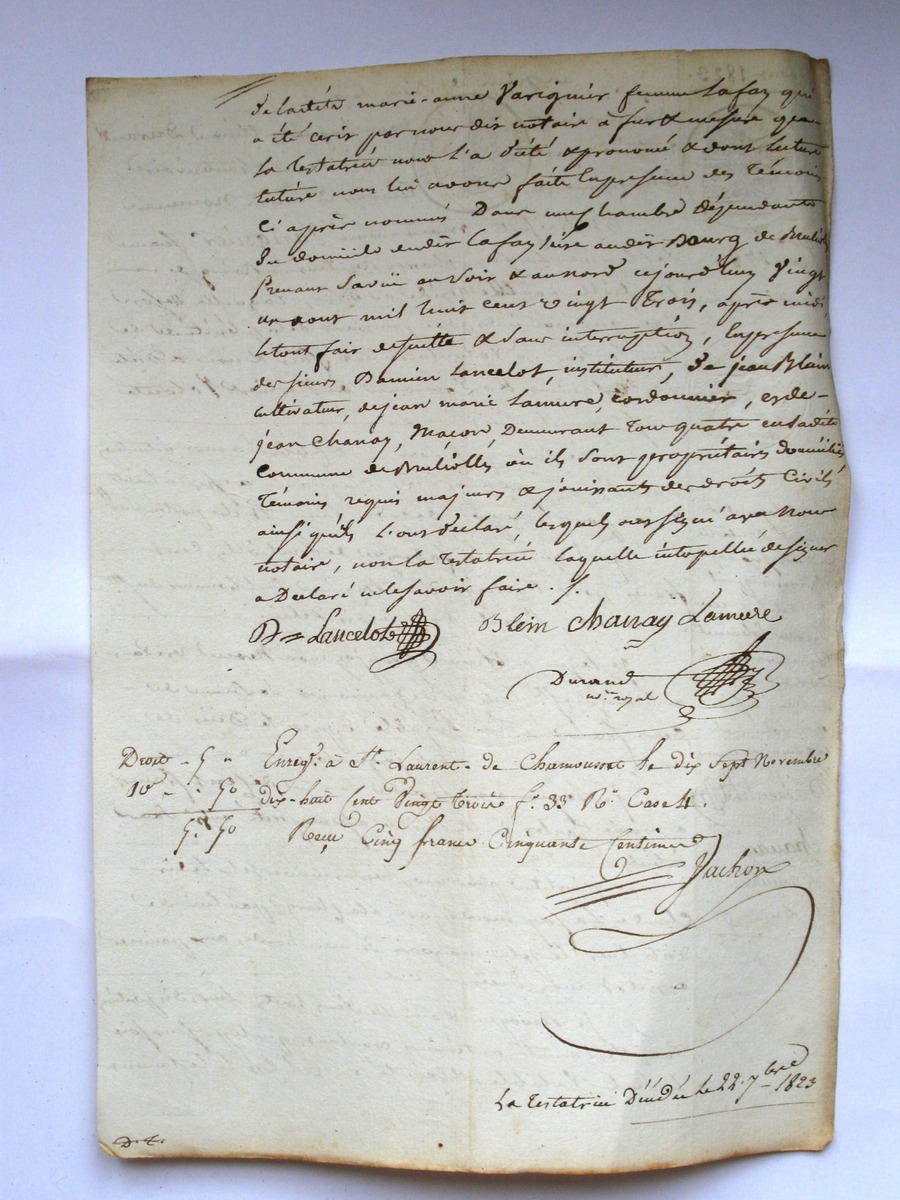 de ladite marie-anne Varignier femme Lafay qui
a été écrit par nous dit notaire à fur & mesure que
la Testatrice nous l'a dicté & prononcé & dont lecture
nous lui avons faite En présence des Témoins
Ci après nommés Dans une chambre dépendante
du domicile dudit Lafay sise audit Bourg de
Prenant Savüe au Soir & au nord cejourd'huy Vingt
un aout mil huit cent vingt Trois, après midi
letout fait desuitte & sans interruption, En présence
des sieurs Damien Lancelot, instituteur, de jean Blain
cultivateur, de jean marie Lamure, cordonnier, et de
jean Chanay, Maçon, Demeurant Tous quatre en ladite
Commune de Brullioles où ils sont propriétaires domiciliés
Témoins requis majeurs & jouissants des droits Civils
ainsi qu'ils l'ont déclaré, lesquels ont signé avec Nous
notaire, non la Testatrice laquelle interpellée de signer
a Déclaré ne le savoir faire ./.
D = Lancelot
Blein Chanay Lamure
Durand
nre royal
Droit - 5 "
Enregé. à St. Laurent - de Chamousset le dix Sept Novembre
10e - . 50
dix-huit Cent Vingt Trois fo. 33 Ro. Case 4.
5. 50
Reçu Cinq francs Cinquante Centimes
Vachon
La Testatrice Décédée le 22 7bre 1823
D. L.